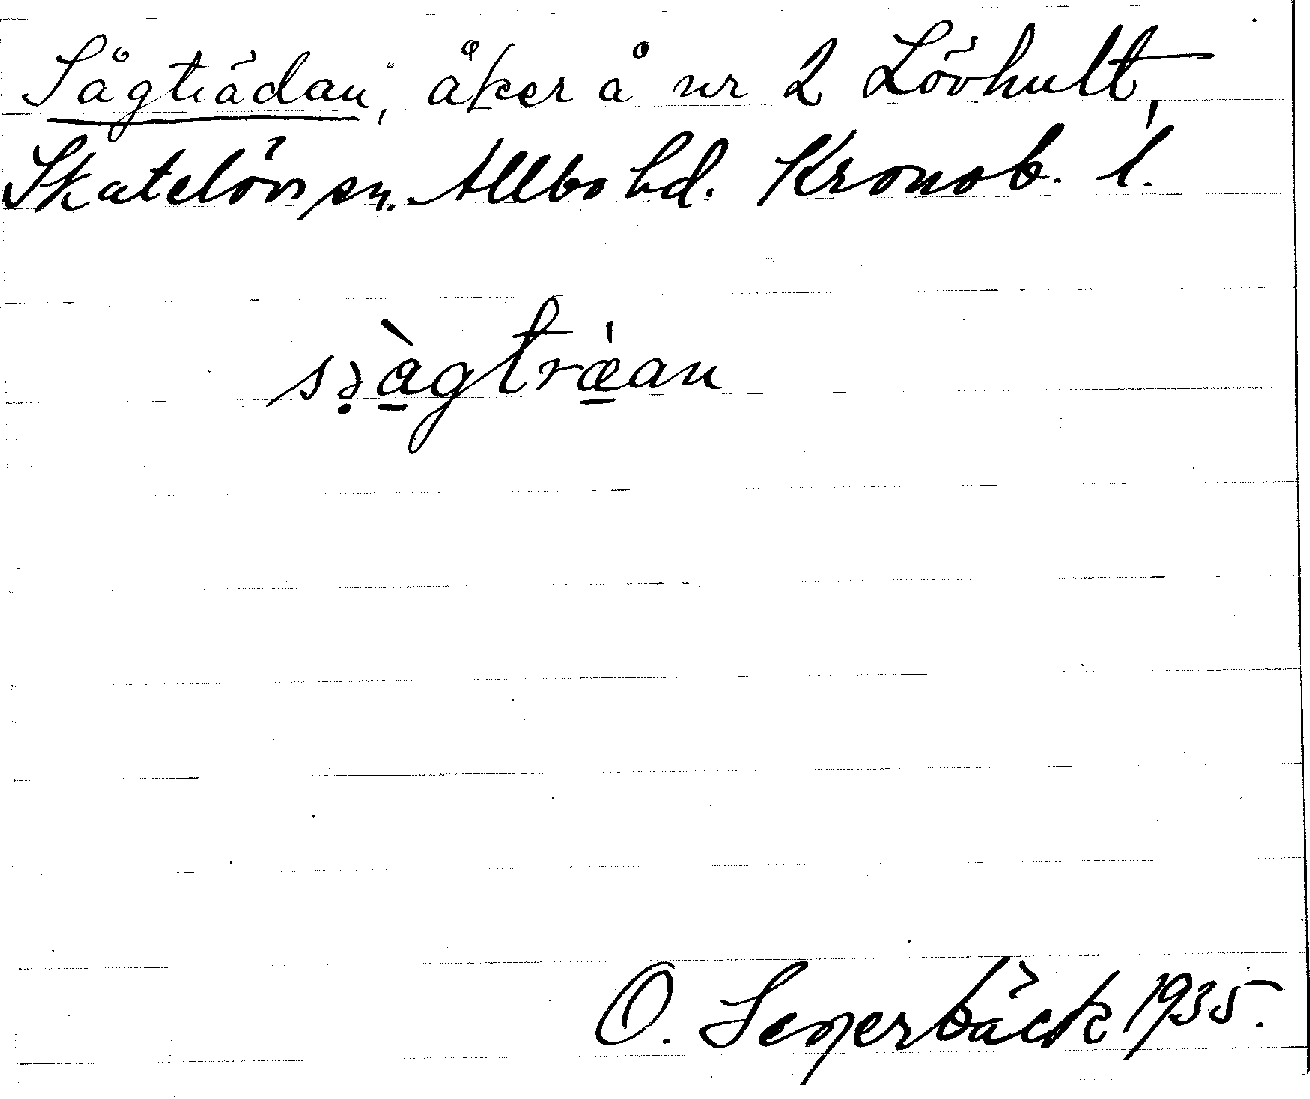 Sågträdan, åker å nr 2 Lövhult,
Skatelövs sn. Allbo hd. Kronob. l.
sə̣àgtræ̀an
O. Segerbäck 1935.